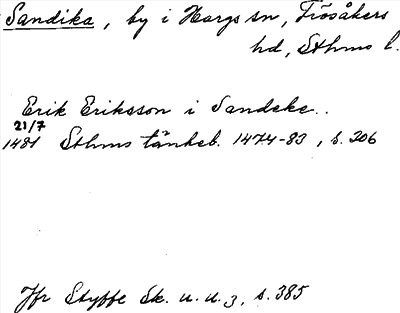 Sandika, by i Hargs sn, Frösåkers
hd, Sthms l.
Erik Eriksson i Sandeke..
21/7
1481 Sthms tänkeb. 1474-83, s. 306
Jfr Styffe Sk. u. u. 3, s. 385